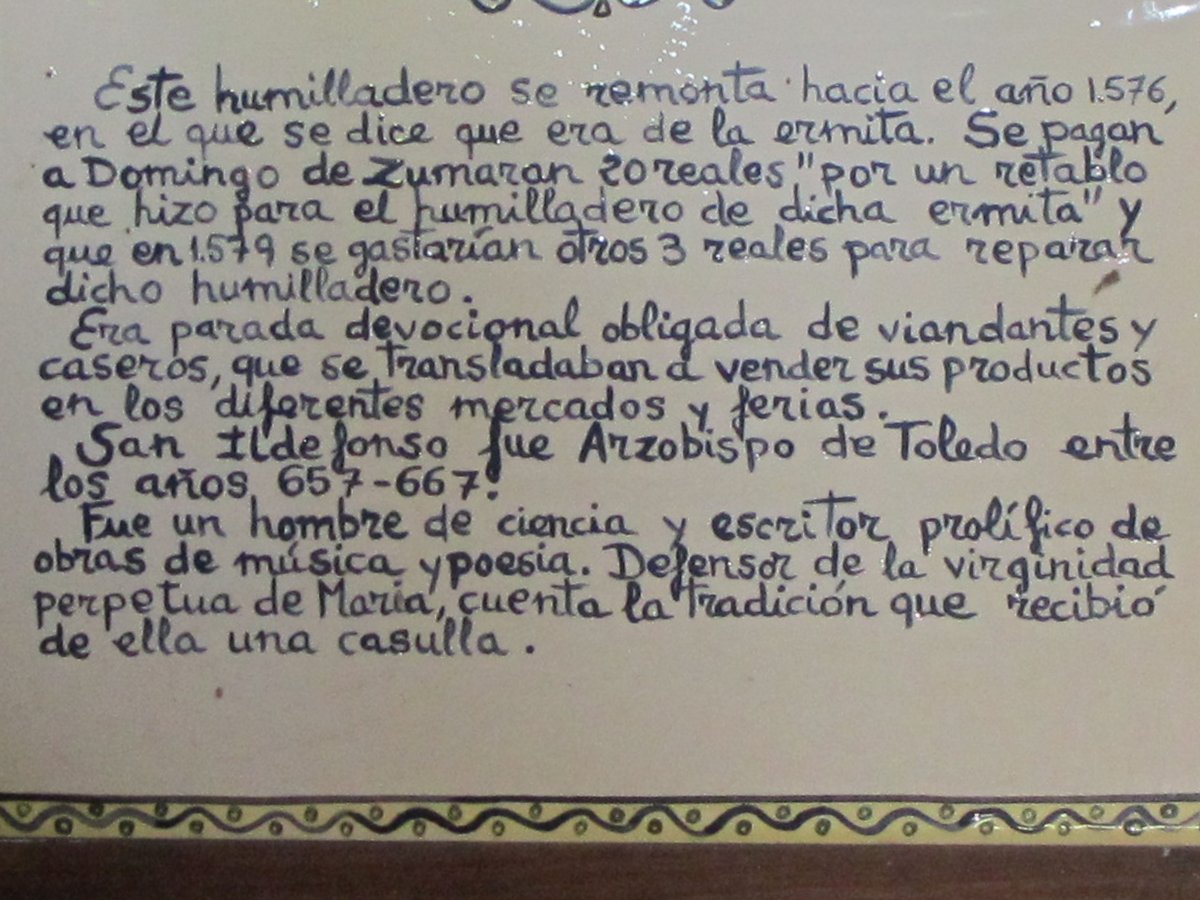 Este humilladero se remonta hacia el año 1.576,
en el que se dice que era de la ermita. Se pagan
a Domingo de Zumaran 20 reales "por un retablo
que hizo para el humilladero de dicha ermita" y
que en 1.579 se gastarían otros 3 reales para reparar
dicho humilladero.
Era parada devocional obligada de viandantes y
caseros, que se transladaban a vender sus productos
en los diferentes mercados y ferias.
San Ildefonso fue Arzobispo de Toledo entre
los años 657-667.
Fue un hombre de ciencia y escritor prolífico de
obras de música y poesia. Defensor de la virginidad
perpetua de María, cuenta la tradición que recibió
de ella una casulla.